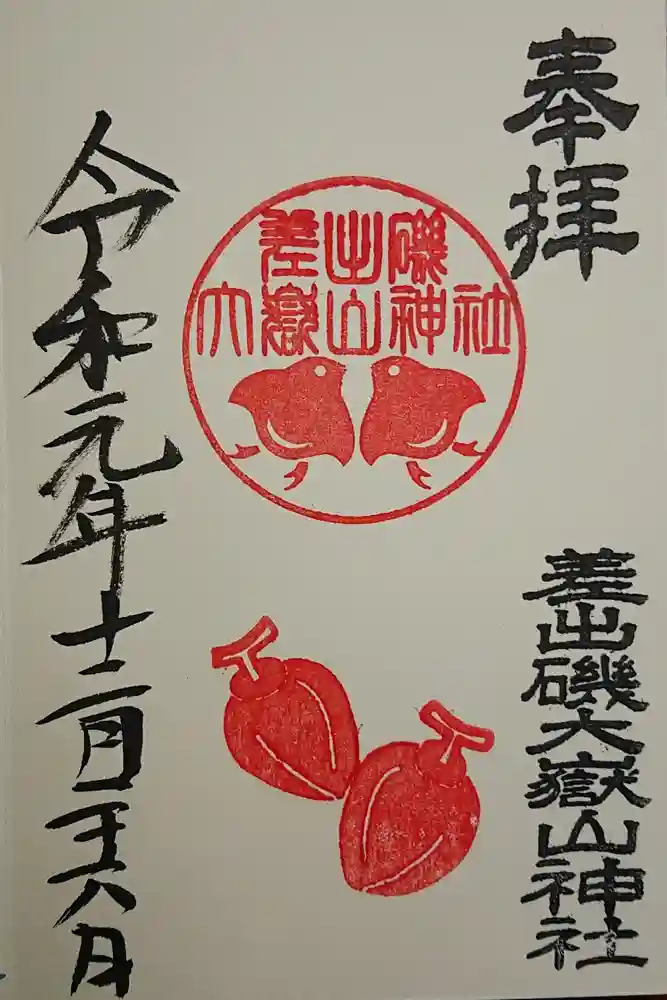 奉拝
差出磯
大嶽山神社
差出磯大嶽山神社
令和元年十二月二十八日